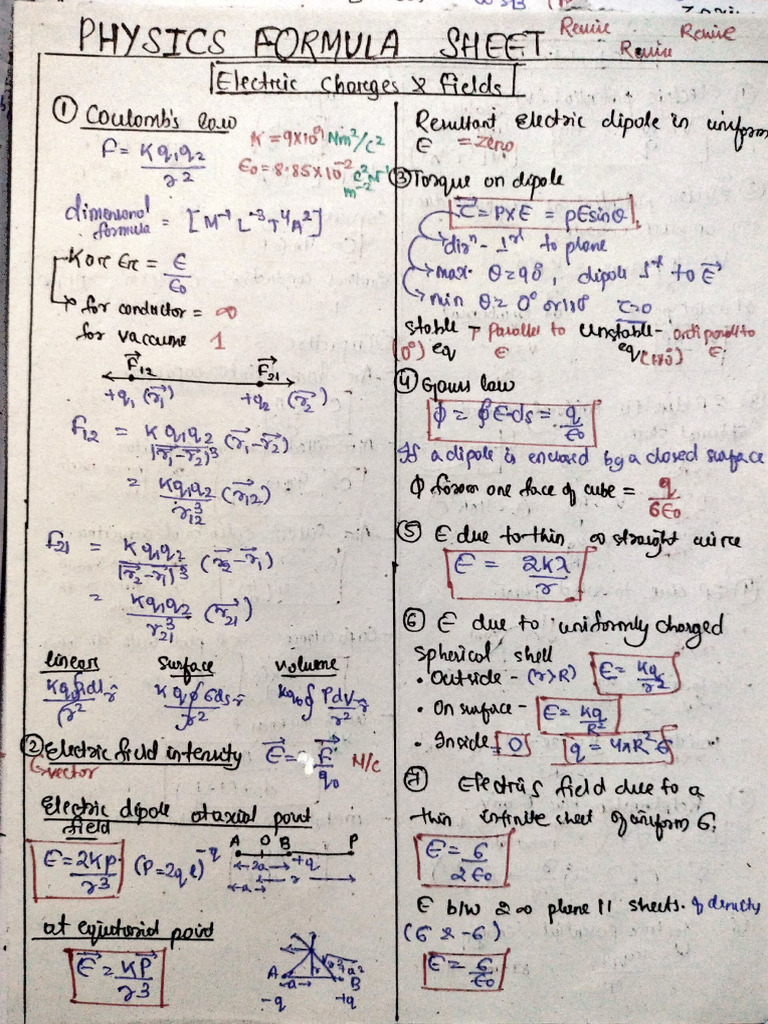 PHYSICS FORMULA SHEET
Revise Revise Revise
Electric Charges & fields
① Coulomb's law
F = Kq₁q₂/r²
K = 9×10⁹ Nm²/C²
ε₀ = 8.85×10⁻² C²N⁻¹ m⁻²
dimensional formula = [M⁻¹ L⁻³ T⁴ A²]
K or εr = ε/ε₀
for conductor = ∞
for vaccume 1
F₁₂ F₂₁
+q₁ (r₁) +q₂ (r₂)
F₁₂ = Kq₁q₂/|r₁-r₂|³ (r₁-r₂)
= Kq₁q₂/r₁₂³ (r₁₂)
F₂₁ = Kq₁q₂/|r₂-r₁|³ (r₂-r₁)
= Kq₁q₂/r₂₁³ (r₂₁)
linear surface volume
Kq₀∮λdl r̂/r² Kq∮σds r̂/r² Kq₀∮ρdV r̂/r²
② Electric field intensity E = F/q₀ N/C
vector
Electric dipole at axial point
field
E = 2KP/r³ (P=2ql)
-q A O B +q P
←2a→ r
←a→
at equitorial point
E = KP/r³
A B
←a→
-q +q
Resultant electric dipole in uniform
E = zero
③ Torque on dipole
τ = P×E = pEsinθ
dirⁿ - ⊥ʳ to plane
max. θ = 90°, dipole ⊥ʳ to E
min θ = 0° or 180° τ=0
stable - parallel to unstable - antiparallel to
(0°) eq E eq (180°) E
④ Gauss law
ϕ = ∮E·ds = q/ε₀
If a dipole is enclosed by a closed surface
ϕ from one face of cube = q/6ε₀
⑤ E due to thin ∞ straight wire
E = 2Kλ/r
⑥ E due to uniformly charged
spherical shell
• Outside - (r>R) E = Kq/r²
• On surface - E = Kq/R²
• Inside - 0 q = 4πR²σ
⑦ Electric field due to a
thin infinite sheet of uniform σ.
E = σ/2ε₀
E b/w 2 ∞ plane || sheets. of density
(σ & -σ)
E = σ/ε₀